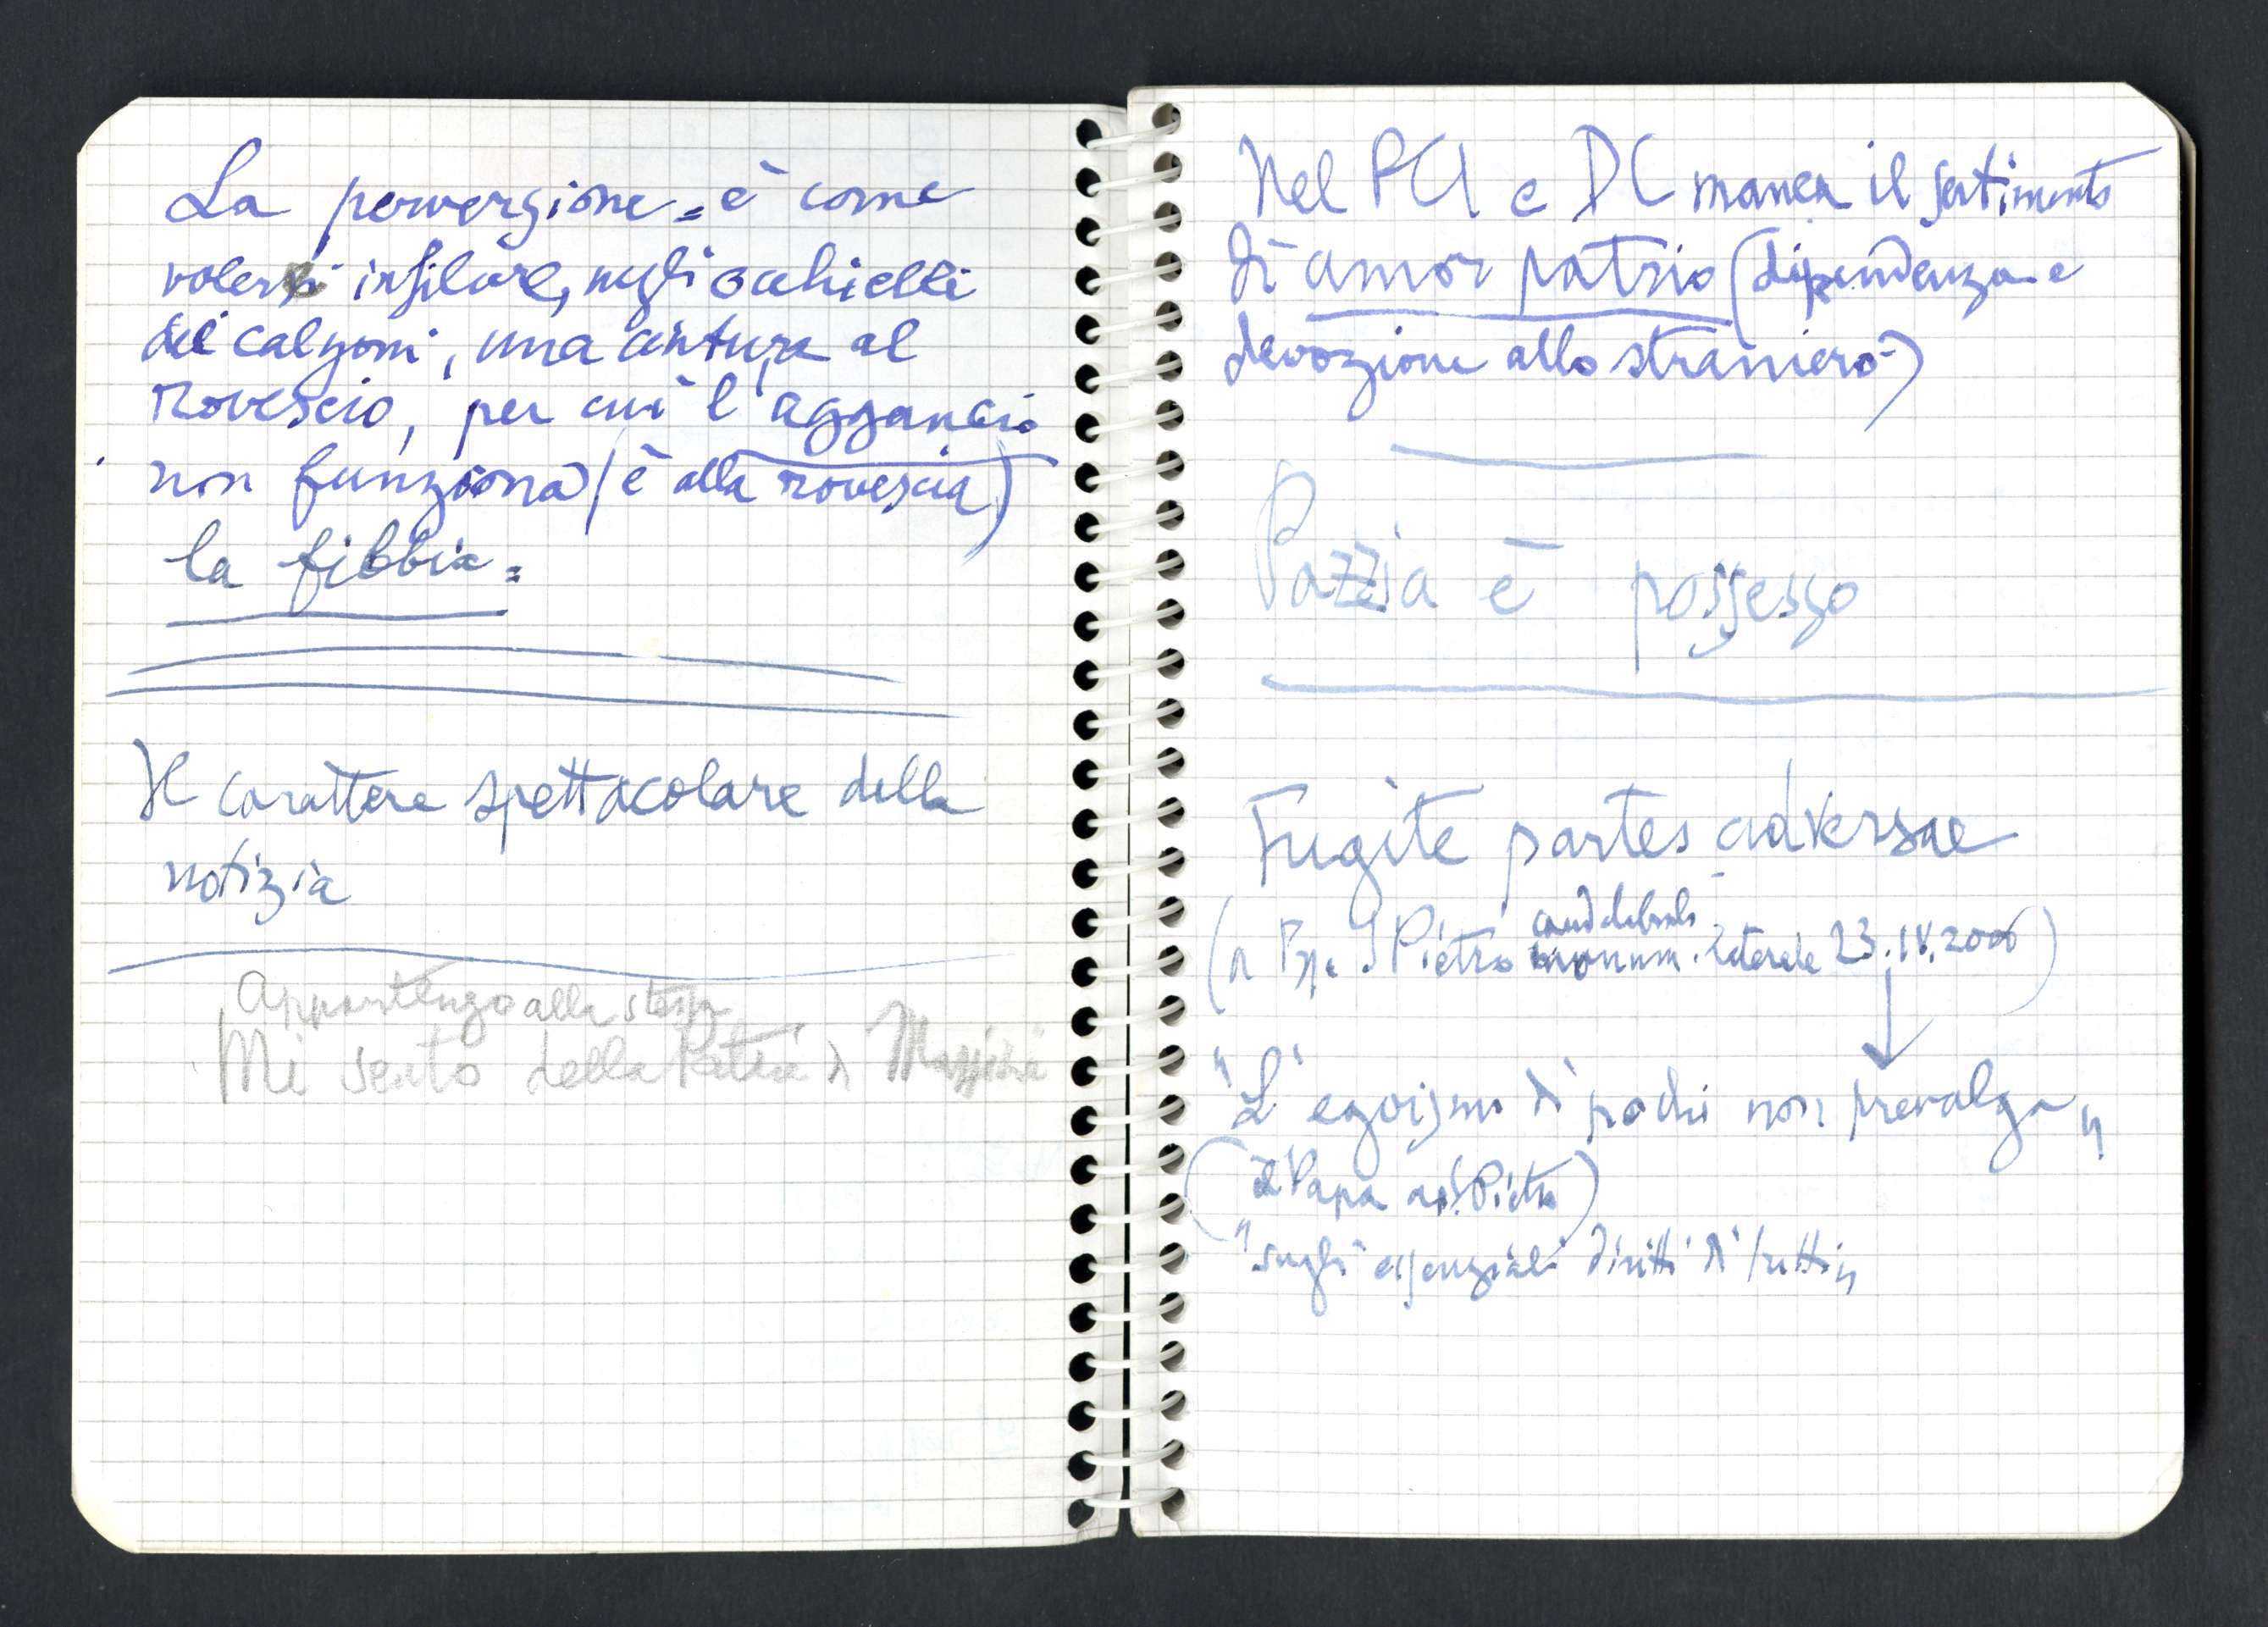 La perversione = è come
volersi infilare, negli occhielli
dei calzoni, una cintura al
rovescio, per cui l'aggancio
non funziona (è alla rovescia)
la fibbia =
Il carattere spettacolare della
notizia
Appartengo alla stessa
Mi sento della Patria di Mazzini
Nel PCI e DC manca il sentimento
di amor patrio (dipendenza e
devozione allo straniero)
Pazzia è possesso
Fugite partes adversae
(a P.zza S Pietro monum. laterale 23.IV.2000)
"L'egoismo di pochi non prevalga"
(il Papa a S. Pietro)
"sugli essenziali diritti di tutti"